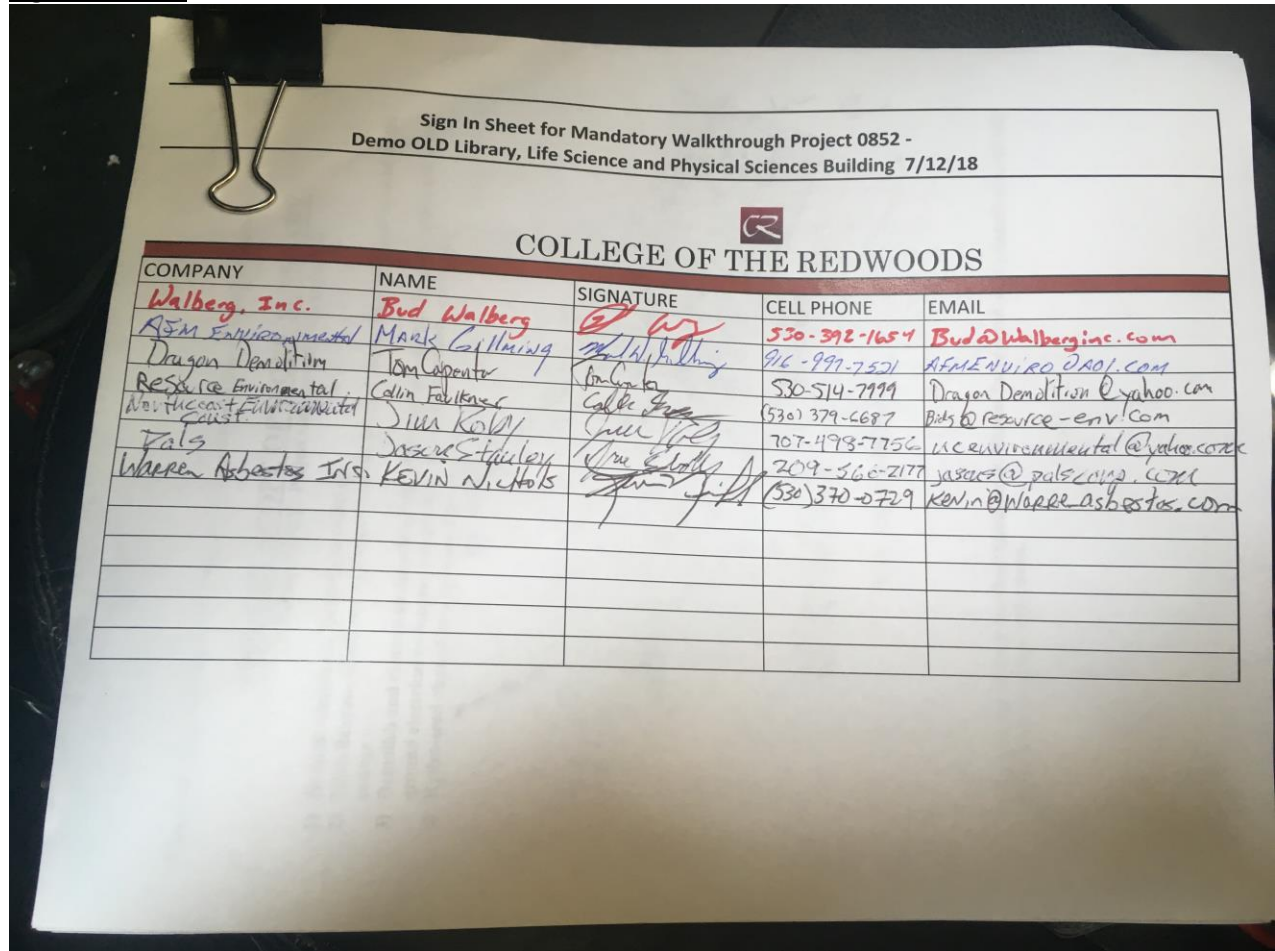 Sign In Sheet for Mandatory Walkthrough Project 0852 -
Demo OLD Library, Life Science and Physical Sciences Building 7/12/18
CR
COLLEGE OF THE REDWOODS
COMPANY NAME SIGNATURE CELL PHONE EMAIL
Walberg, Inc. Bud Walberg 530-392-1654 Bud@Walberginc.com
AFM Environmental Mark Gillming 916-997-7521 AFMENVIRO@AOL.COM
Dragon Demolition Tom Carpenter 530-514-7999 DragonDemolition@yahoo.com
Resource Environmental. Collin Faulkner (530) 379-6687 Bids@resource-env.com
Northcoast Environmental Const. Jim Koby 707-498-7756
Pals Jason Stanley 209-566-2177
Warren Asbestos Ins. KEVIN NICHOLS (530) 370-0729